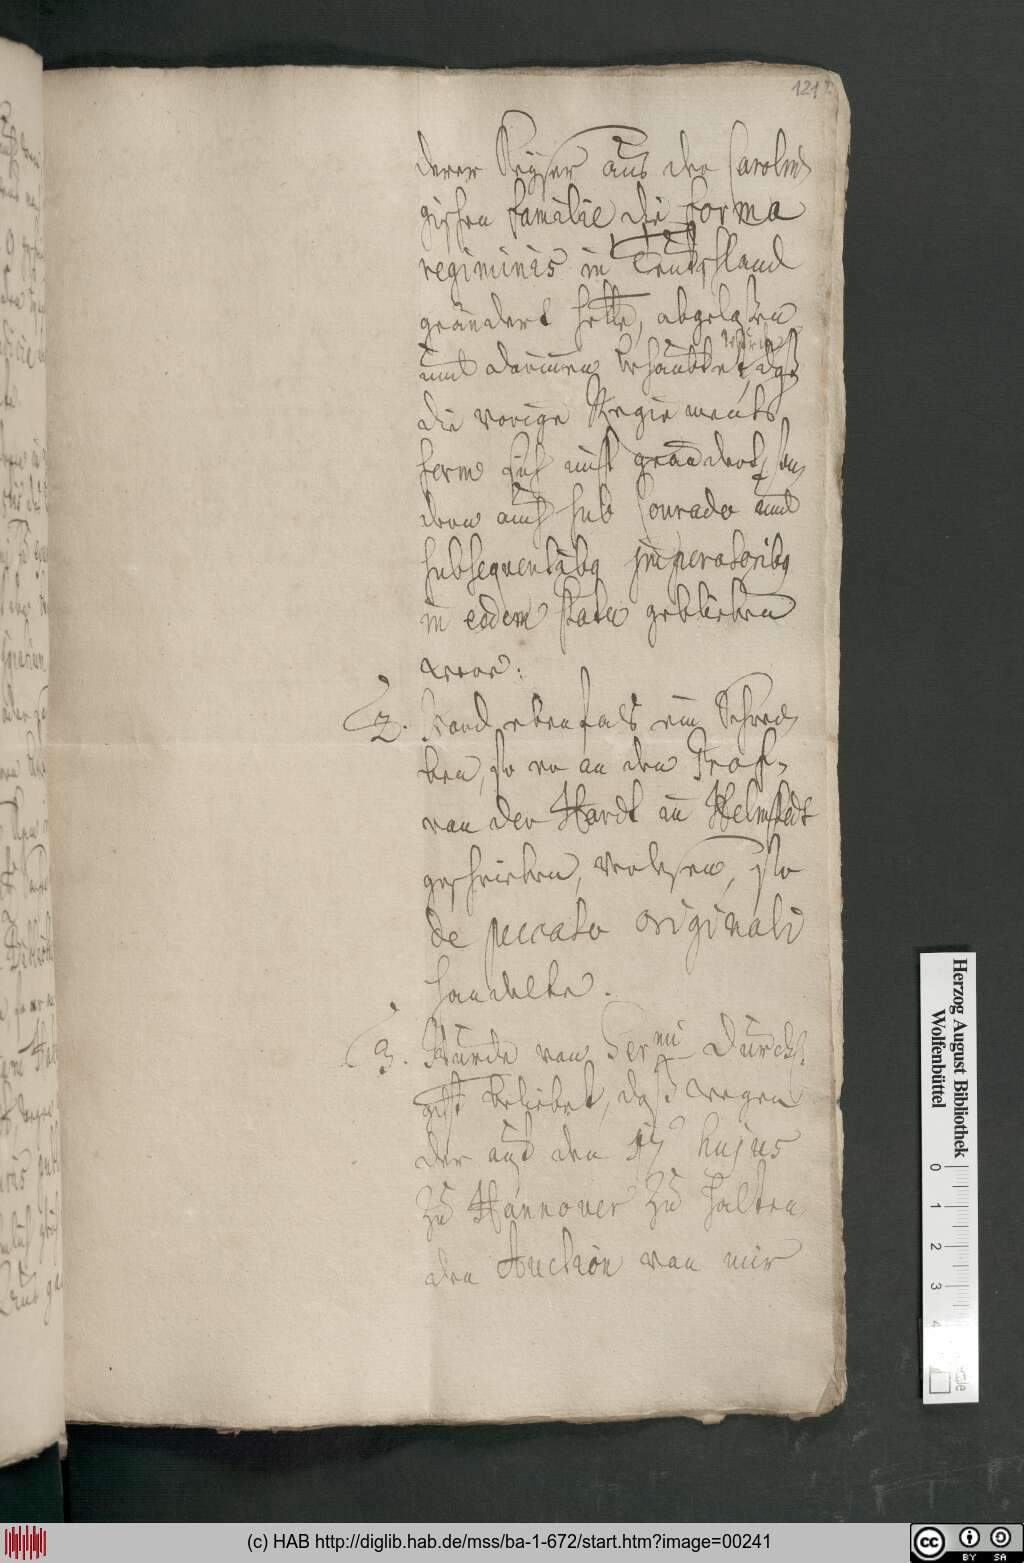 121
derer Keyser aus der Carolin-
gischen familie die forma
regiminis in Teutschland
geändert hette, abgelesen
und darinnen behaubtet, daß
die vorige Regiments
form sich nicht geändert, son-
dern auch sub Conrado und
subsequentibq imperatoribq
in eodem statu geblieben
were:
2. Ward ebenfals ein Schrei-
ben, so er an den Prof.
von der Hardt in Helmstedt
geschrieben, verlesen, so
de peccato originali
handelte.
3. Wurde von Sermi Durchl.
gdst beliebet, daß wegen
der auf den 17 hujus
zu Hannover zu halten
den Auction von mir
Herzog August Bibliothek
Wolfenbüttel
0 1 2 3 4
(c) HAB http://diglib.hab.de/mss/ba-1-672/start.htm?image=00241
cc BY SA